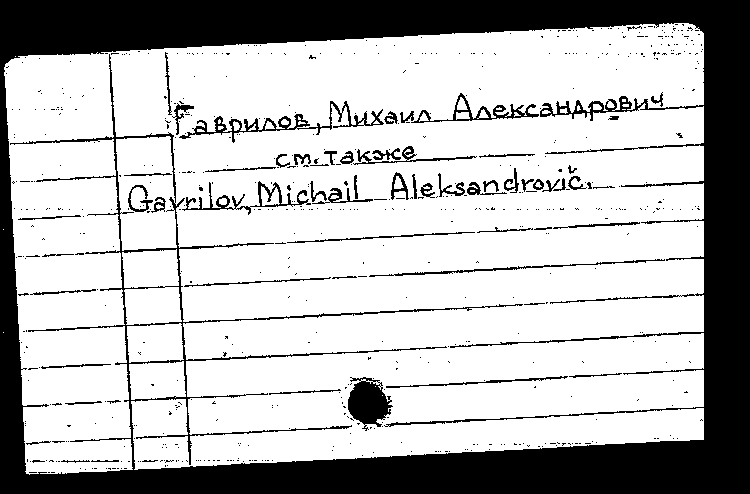 Гаврилов, Михаил Александрович
см. также
Gavrilov, Michail Aleksandrovič.